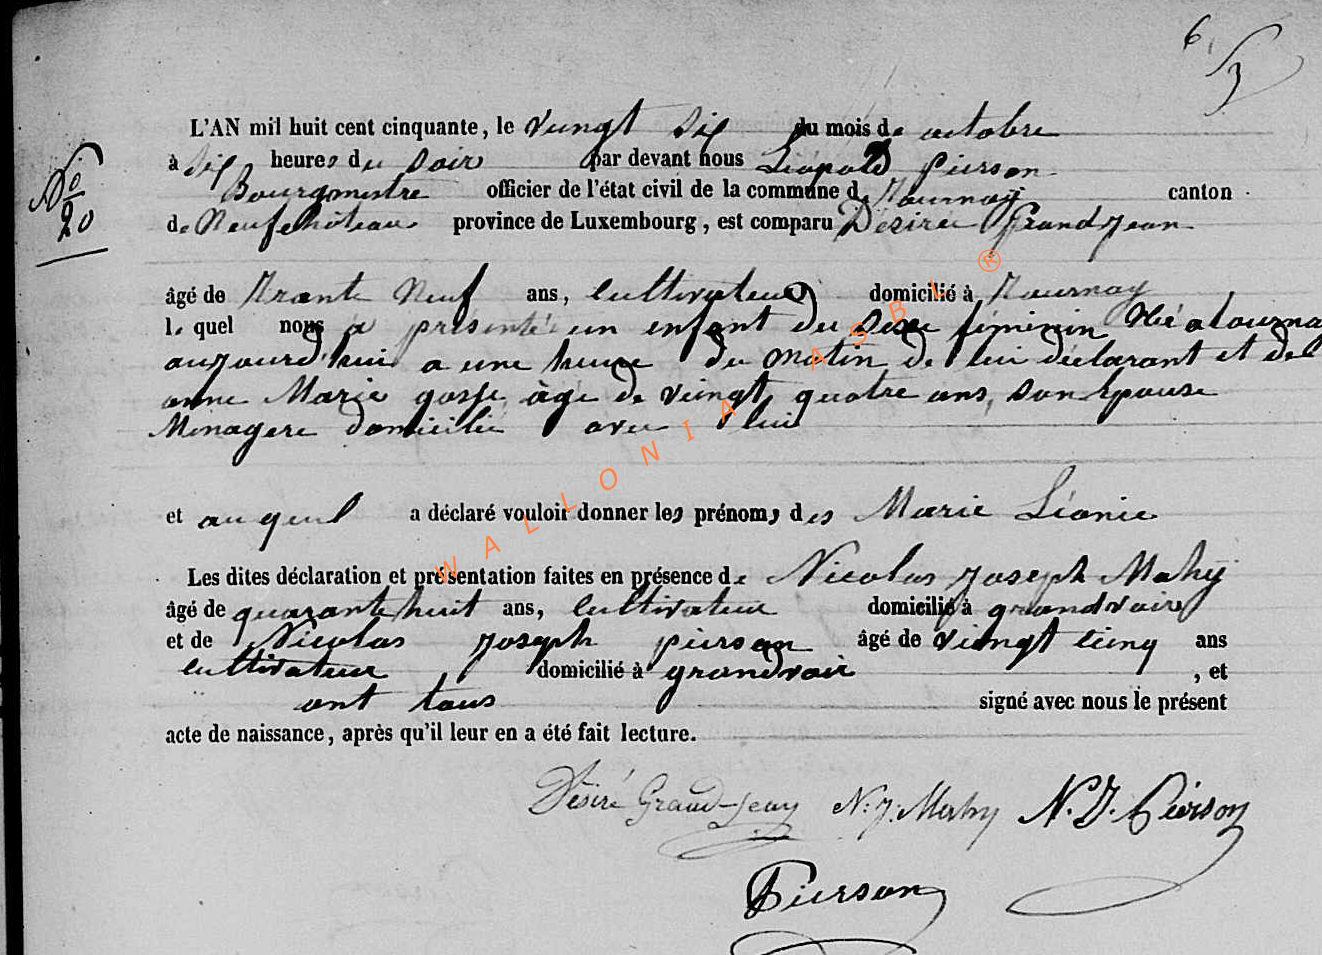 6
N° 20
L'AN mil huit cent cinquante, le vingt six du mois de octobre
à six heures du soir par devant nous Léopold Pierson
Bourgmestre officier de l'état civil de la commune de Tournay canton
de Neufchoteau province de Luxembourg, est comparu Désiree Grandjean
âgé de Trante Neuf ans, cultivateur domicilié à Tournay
le quel nous a présenté un enfant du sexe féminin Né a tourna
aujourd'hui a une heure du matin de lui déclarant et de
anne Marie gosse âgé de vingt quatre ans, son épouse
Menagere domicilié avec lui
et auquel a déclaré vouloir donner les prénoms des Marie Léonie
Les dites déclaration et présentation faites en présence de Nicolas Joseph Mahy
âgé de quarante huit ans, cultivateur domicilié à grandvoir
et de Nicolas Joseph pierson âgé de vingt cinq ans
cultivateur domicilié à grandvoir , et
ont tous signé avec nous le présent
acte de naissance, après qu'il leur en a été fait lecture.
Désiré Grand-Jean N. J. Mahy N. J. Pierson
Pierson
WALLONIA ASBL ®